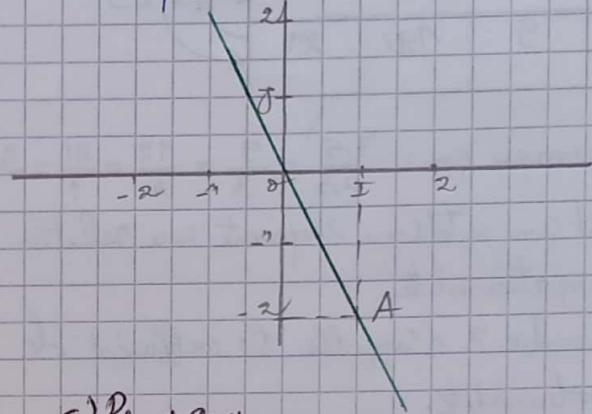 2
J
-2 -1 0 I 2
-1
-2 A